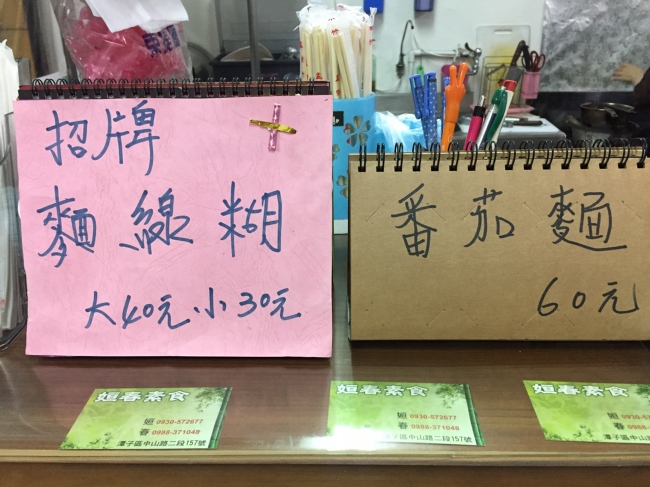 招牌
麵線糊
大40元.小30元
番茄麵
60元
姮春素食
姮 0930-572677
春 0988-371048
潭子區中山路二段157號
姮春素食
姮 0930-572677
春 0988-371048
潭子區中山路二段157號
姮春素食
姮 0930-5726
春 0988-3710
潭子區中山路二段157號